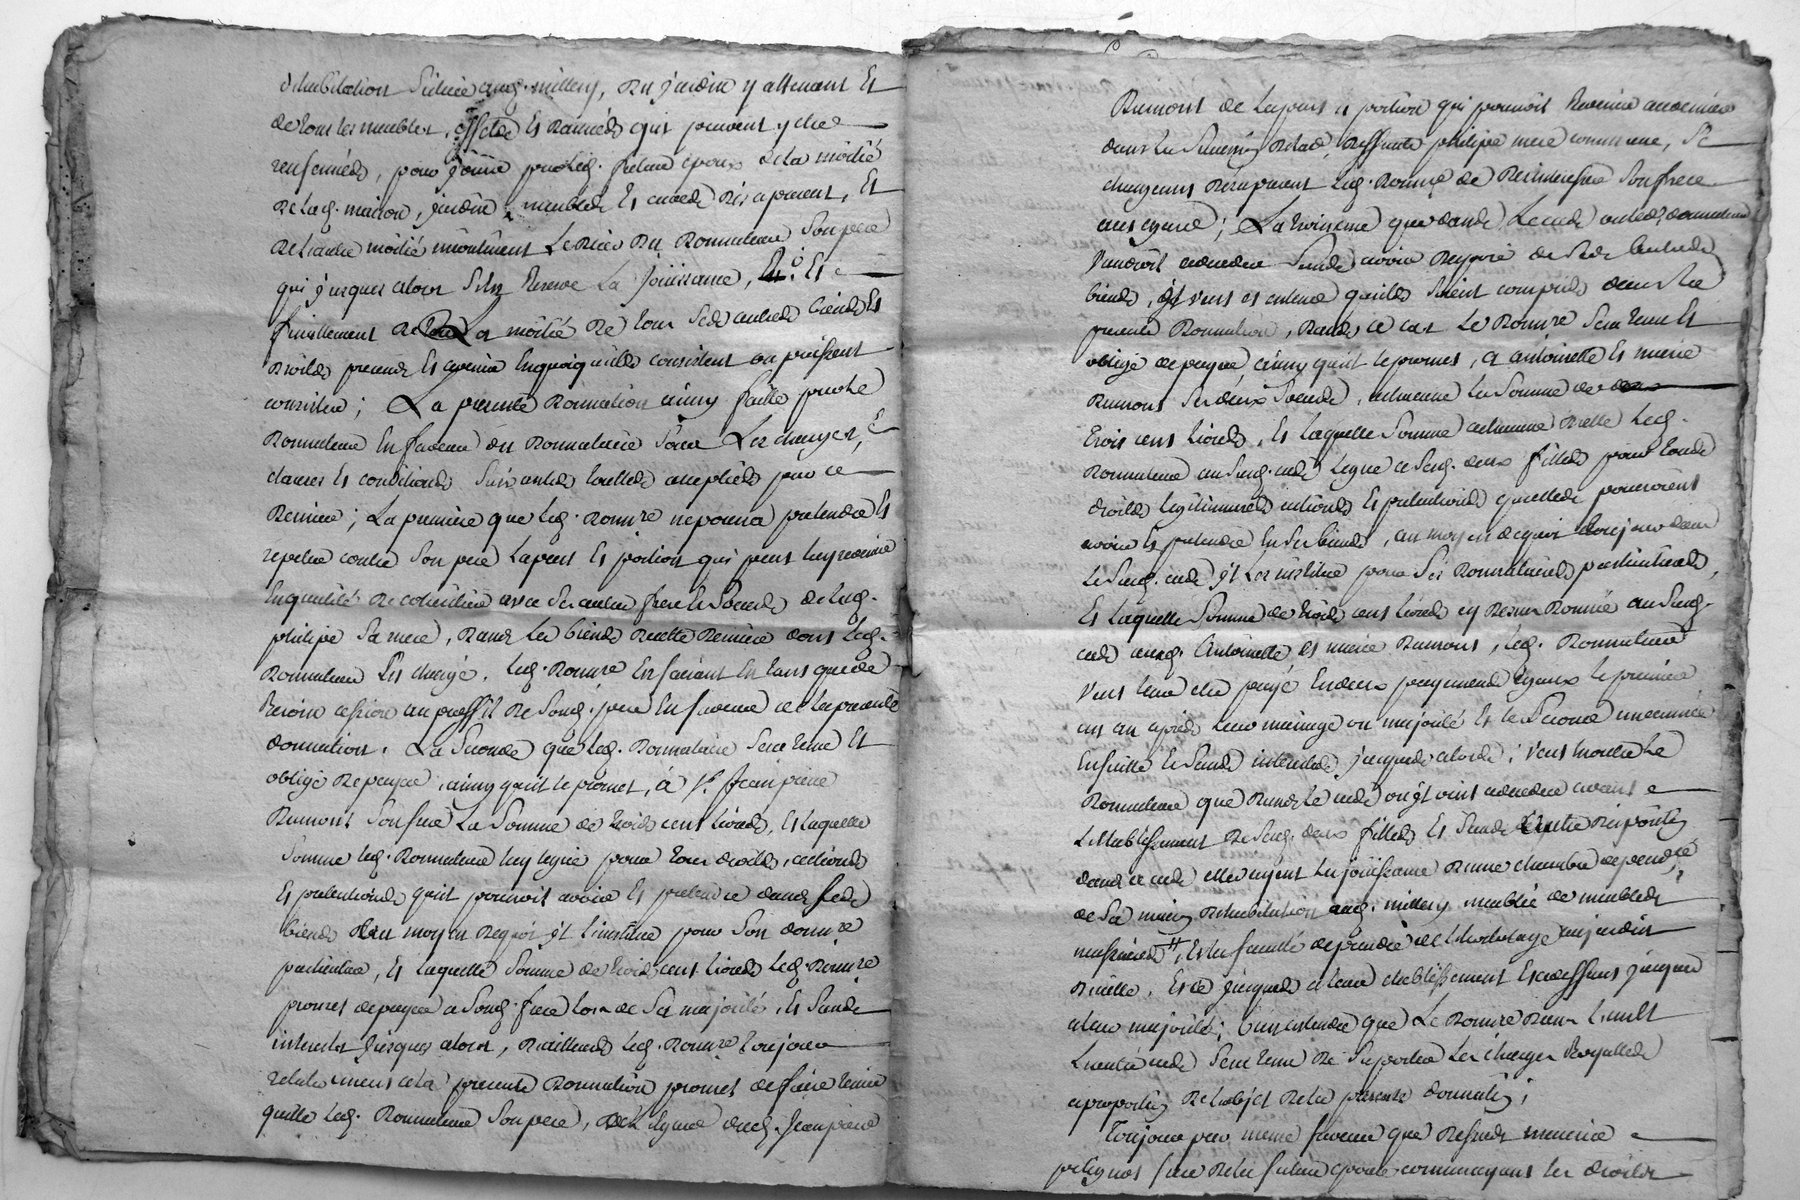 d'habitation scituée aud. millery, du jardin y attenant Et
de tous les meubles, effets Et danrées qui peuvent y etre
renfermées, pour jouir par led. futeur epoux de la moitié
de lad. maison, jardin, meubles Et entrée dès a present, Et
de l'autre moitié incontinent Le deces du donnateur Son pere
qui jusques alors S'En Reserve La jouissance, Et
finallement de La moitié de tous Ses autres biens Et
droits presents Et avenir En quoy qu'ils consistent ou puissent
consister ; La presente donnation ainsy faitte par le
donnateur En faveur du donnataire Sous Les charges,
clauses Et conditions Suivantes touttes acceptées par ce
dernier ; La premiere que led. donnre ne pourra pretendre Et
repeter contre Son pere La part Et portion qui peut luy revenir
En qualité de cohéritier avec Ses autres frere Et Soeurs de lad.
philipe Sa mere, dans Les biens de cette derniere dont led.
donnateur Est chargé, led. donnre En faisant En tant que de
besoin cession au proffit de Sond. pere En faveur de la presente
donnation. La Seconde que led. donnataire Sera tenu Et
obligé de payer, ainsy qu'il le promet, à Sr. Jean pierre
Dumont Son frere La Somme de trois cens livres, Et laquelle
Somme led. donnateur luy legue pour tous droits, actions
Et pretentions qu'il pourroit avoir Et pretendre dans Ses
biens au moyen de quoi il l'institue pour Son donnre
particulier, Et laquelle Somme de trois cens livres led. donnre
promet de payer a Sond. frere lors de Sa majorité, Et Sans
interets jusques alors, d'ailleurs led. donnre toujours
relativement a la presente donnation promet de faire tenir
quitte led. donnateur Son pere, de l'Egard dud. Jean pierre
Dumont de La part Et portion qui pouvoit Revenir au dernier
dans La Succession de lad. deffunte philipe mere commune, Se
chargeant dès a present led. donnre de Rembourser Son frere
a cet egard ; La troisieme que dans Le cas ou led. donnateur
viendroit a deceder Sans avoir disposé de Ses autres
biens, il veut Et entend qu'ils Soient compris dans La
presente donnation, dans ce cas Le donnre Sera tenu Et
obligé de payer, ainsy qu'il le promet, a antoinette Et marie
Dumont Ses deux Soeurs, a chacune La Somme de
trois cens livres, Et laquelle Somme a chacune d'elle led.
donnateur audit cas legue a Sesd. deux filles pour tous
droits legitimaires actions Et pretentions qu'elles pourroient
avoir Et pretendre En Ses biens, au moyen de quoi toujours dans
Le Susd. cas il Les institue pour Ses donnataires particulieres,
Et laquelle Somme de trois cens livres cy dessus donnée au Susd.
cas auxd. Antoinette Et marie Dumont, led. donnateur
veut leur etre payé En deux payements egaux le premier
un an après leur mariage ou majorité Et le Second une année
Ensuitte Et Sans interets jusques alors ; veut En outre Le
donnateur que dans Le cas ou il vint a deceder avant
L'etablissement de Sesd. deux filles Et Sans autre disposition
dans ce cas elles ayent La jouissance d'une chambre dependte
de Sa maison d'habitation aud. millery meublée de meubles
necessaires, Et la faculté de prendre de l'herbage au jardin
d'icelle, Et ce jusques a leur etablissement Et au dessus jusques
a leur majorité ; bien entendu que Le donnre dans l'un Et
L'autre cas Sera tenu de Supporter Les charges Royalles
a proportion de l'objet de la presente donnation ;
toujours par meme faveur que dessus maurice
polignas frere de la future epouse connoissant les droits